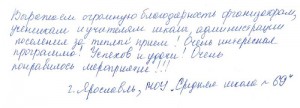 Выражаем огромную благодарность организаторам,
ученикам и учителям школы, администрации
поселения за теплый прием! Очень интересная
программа! Успехов и удачи! Очень
понравилось мероприятие!!!
г. Ярославль, МОУ "Средняя школа № 69"